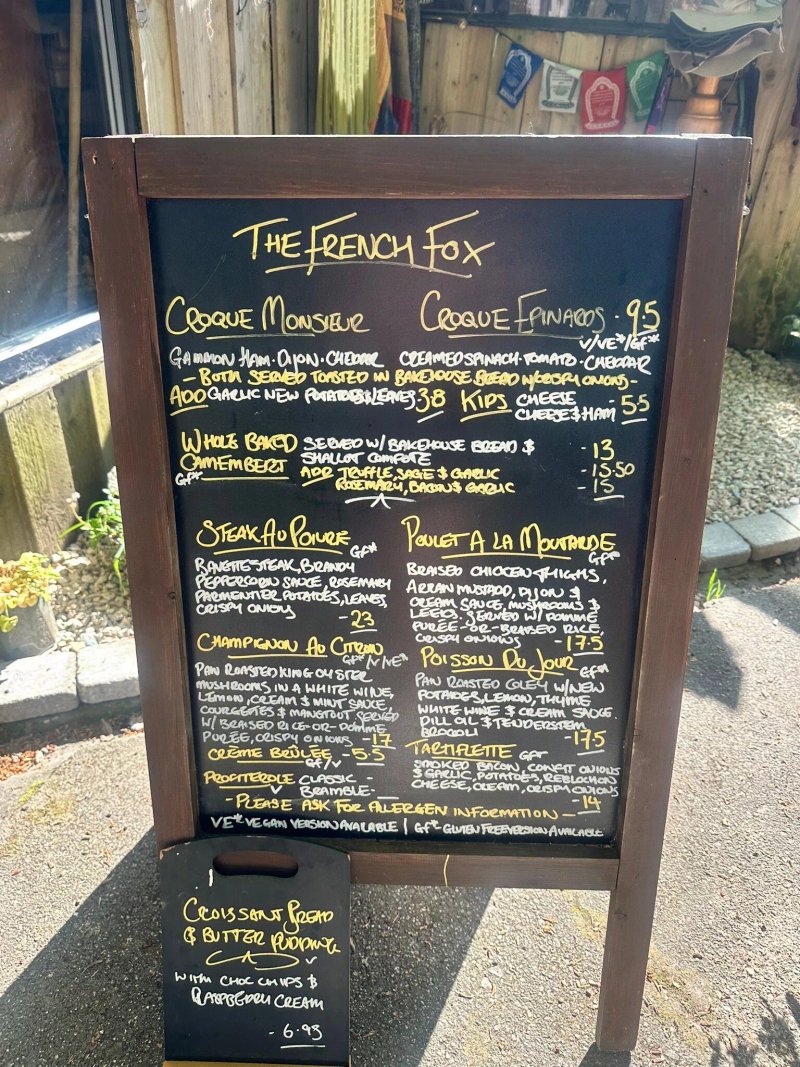 THE FRENCH FOX
CROQUE MONSIEUR
CROQUE EPINARDS · 9.5
V/VE*/GF*
GAMMON HAM · DIJON · CHEDDAR
CREAMED SPINACH · TOMATO · CHEDDAR
- BOTH SERVED TOASTED IN BAKEHOUSE BREAD W/CRISPY ONIONS -
ADD GARLIC NEW POTATOES & LEAVES 3.8
KIDS CHEESE
CHEESE & HAM - 5.5
WHOLE BAKED SERVED W/ BAKEHOUSE BREAD & - 13
CAMEMBERT SHALLOT COMPOTE
GF* ADD TRUFFLE, SAGE & GARLIC - 15.50
ROSEMARY, BACON & GARLIC - 15
STEAK AU POIVRE GF*
BAVETTE STEAK, BRANDY
PEPPERCORN SAUCE, ROSEMARY
PARMENTIER POTATOES, LEAVES,
CRISPY ONIONS
- 23
POULET A LA MOUTARDE
GF*
BRAISED CHICKEN THIGHS,
ARRAN MUSTARD, DIJON &
CREAM SAUCE, MUSHROOMS &
LEEKS. SERVED W/ POMME
PURÉE -OR- BRAISED RICE,
CRISPY ONIONS - 17.5
CHAMPIGNON AU CITRON
GF*/V/VE*
PAN ROASTED KING OYSTER
MUSHROOMS IN A WHITE WINE,
LEMON, CREAM & MINT SAUCE,
COURGETTES & MANGTOUT SERVED
W/ BRAISED RICE -OR- POMME
PURÉE, CRISPY ONIONS - 17
POISSON DU JOUR GF*
PAN ROASTED COLEY W/NEW
POTATOES, LEMON, THYME
WHITE WINE & CREAM SAUCE.
DILL OIL & TENDERSTEM
BROCOLI - 17.5
CRÈME BRÛLÉE - 5.5
GF/V
PROFITEROLE CLASSIC -
V BRAMBLE -
TARTIFLETTE GF*
SMOKED BACON, CONFIT ONIONS
& GARLIC, POTATOES, REBLOCHON
CHEESE, CREAM, CRISPY ONIONS
- 14
- PLEASE ASK FOR ALERGEN INFORMATION -
VE* VEGAN VERSION AVAILABLE | GF* GLUTEN FREE VERSION AVAILABLE
CROISSANT BREAD
& BUTTER PUDDING
V
WITH CHOC CHIPS &
RASPBERRY CREAM
- 6.95